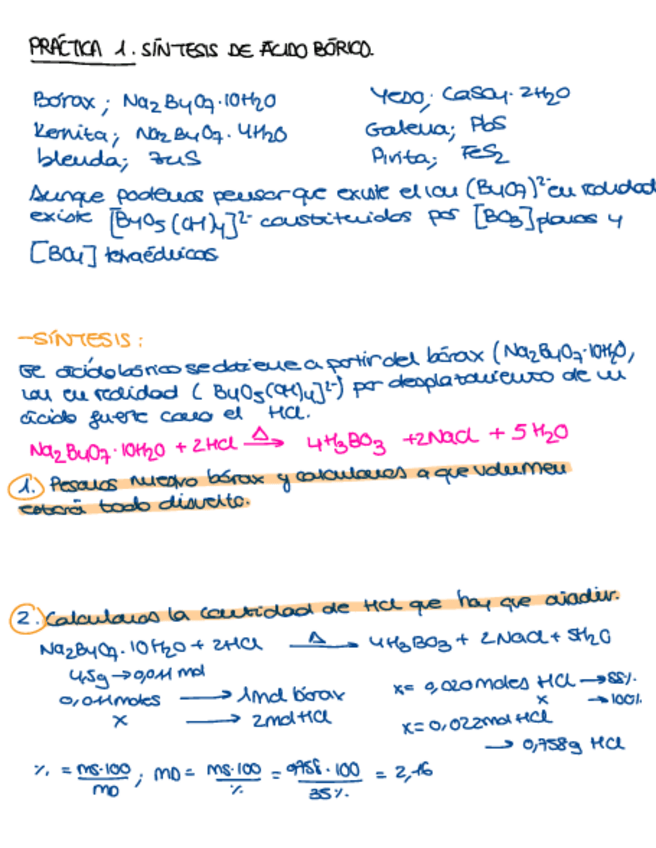 PRÁCTICA 1. SÍNTESIS DE ÁCIDO BÓRICO.
Bórax; Na2B4O7·10H2O
Yeso; CaSO4·2H2O
Kernita; Na2B4O7·4H2O
Galena; PbS
blenda; ZnS
Pirita; FeS2
Aunque podemos pensar que existe el ion (B4O7)2- en realidad
existe [B4O5(OH)4]2- constituidos por [BO3] planos y
[BO4] tetraédricos
-SÍNTESIS:
El ácido bórico se obtiene a partir del bórax (Na2B4O7·10H2O,
ion en realidad (B4O5(OH)4]2-) por desplazamiento de un
ácido fuerte como el HCl.
Na2B4O7·10H2O + 2HCl Δ→ 4H3BO3 + 2NaCl + 5H2O
1. Pesamos nuestro bórax y calculamos a que volumen
estará todo disuelto.
2. Calculamos la cantidad de HCl que hay que añadir.
Na2B4O7·10H2O + 2HCl Δ→ 4H3BO3 + 2NaCl + 5H2O
4,5g → 0,011 mol
0,011moles → 1mol bórax
x → 2mol HCl
x = 0,020moles HCl →
x → 100%
x = 0,022mol HCl
→ 0,758g HCl
% = ms·100/mD; mD = ms·100/% = 0,758·100/35% = 2,16